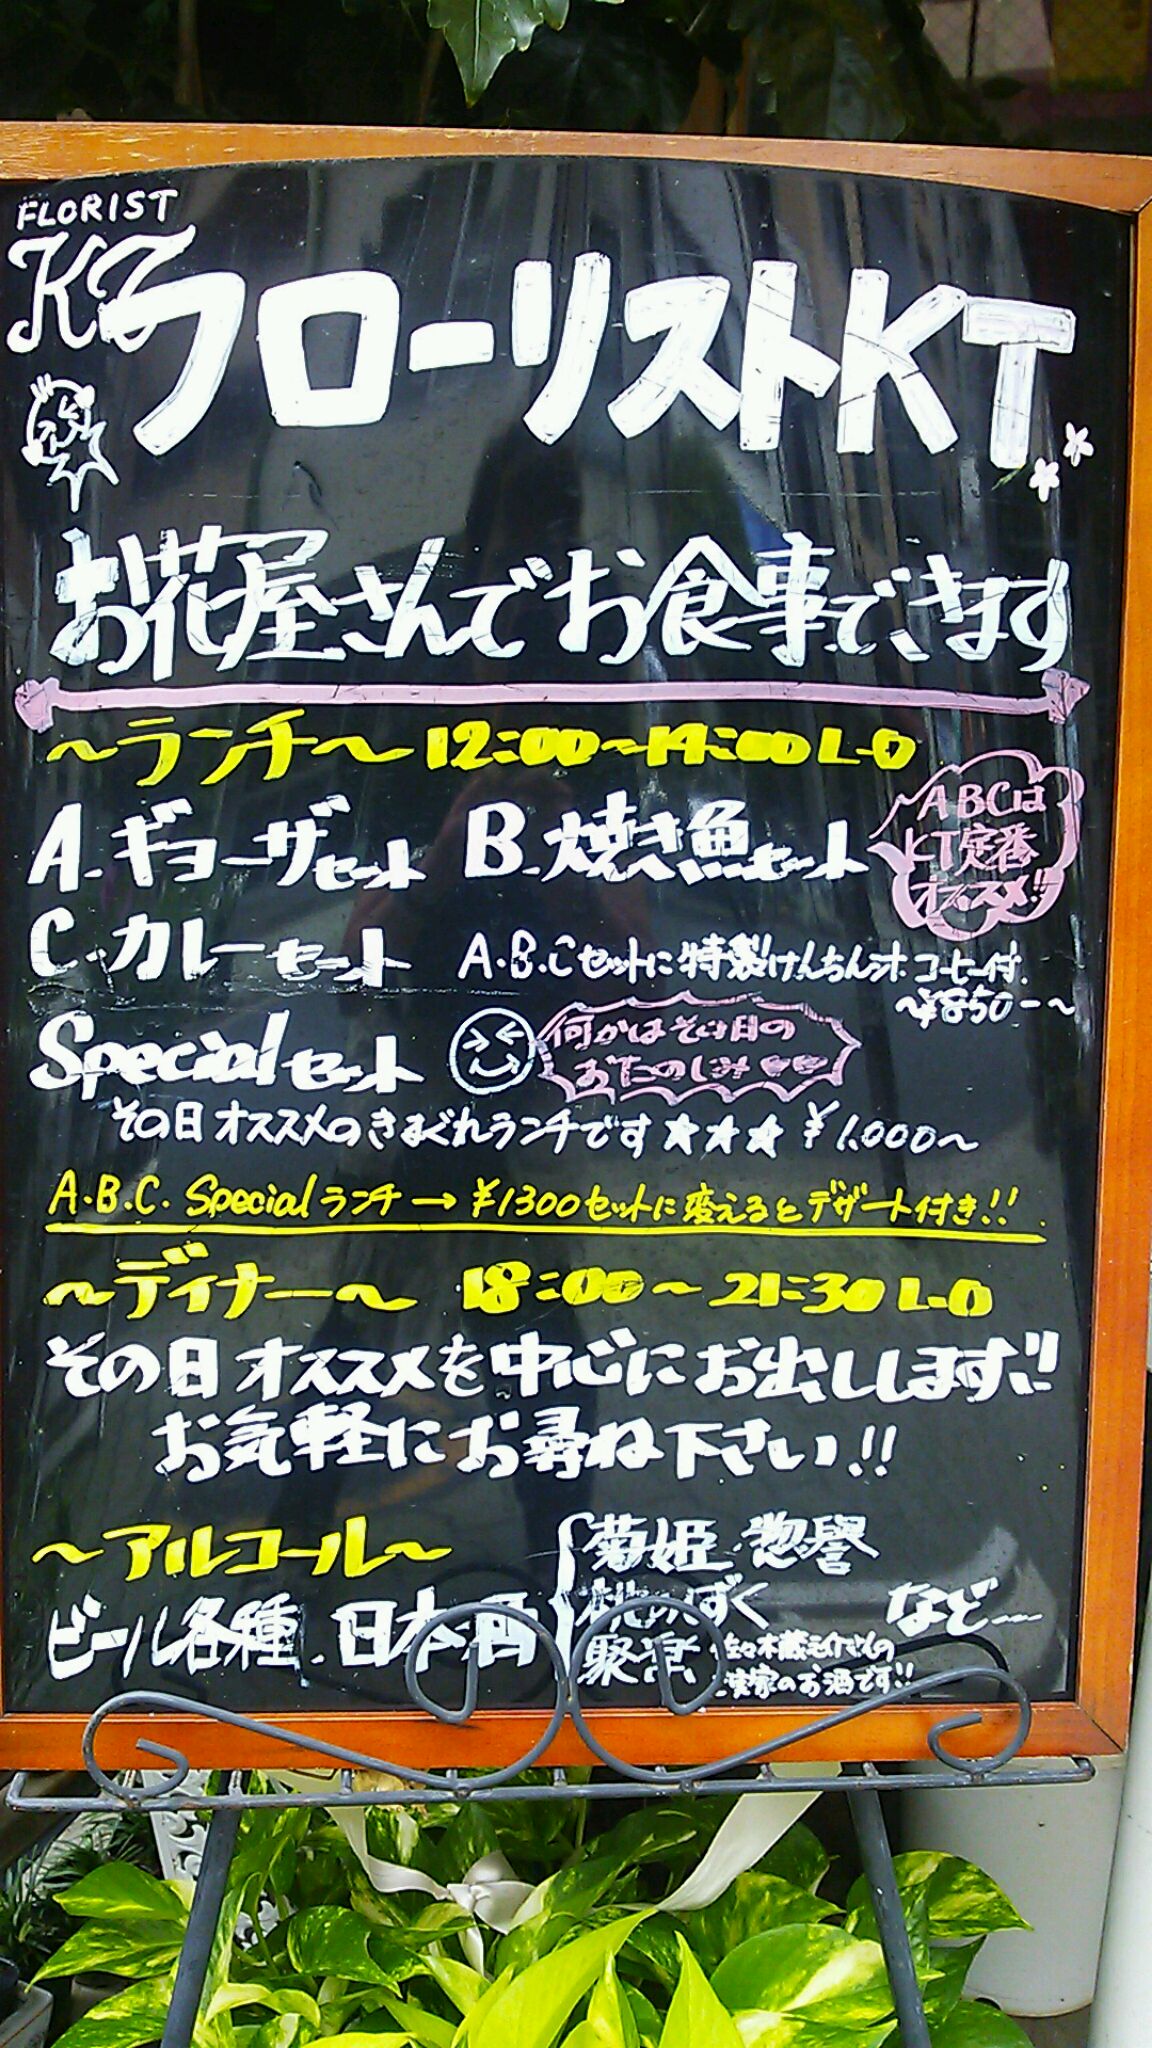 FLORIST
KT
フローリストKT
お花屋さんでお食事できます
〜ランチ〜 12:00〜14:00 L・O
A.ギョーザセット B.焼き魚セット
ABCは
KT定番
オススメ!!
C.カレーセット A.B.Cセットに特製けんちん汁.コーヒー付.
〜¥850-〜
Specialセット 何かはその日の
おたのしみ♥♥
その日オススメのきまぐれランチです★★★ ¥1.000〜
A.B.C. Specialランチ→¥1300セットに変えるとデザート付き!!
〜ディナー〜 18:00〜21:30 L・O
その日オススメを中心にお出しします!!
お気軽にお尋ね下さい!!
〜アルコール〜
ビール各種.日本酒
菊姫.惣譽
桃川.ずく
聚楽
など…
佐々木蔵之介さんの
実家のお酒です!!